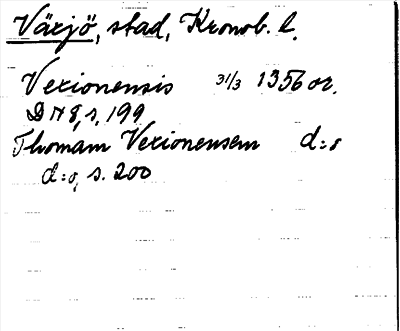 Växjö, stad, Kronob. l.
Vexionensis 31/3 1356 or.
DN 8, s. 199
Thomam Vexionensem d:o
d:o, s. 200